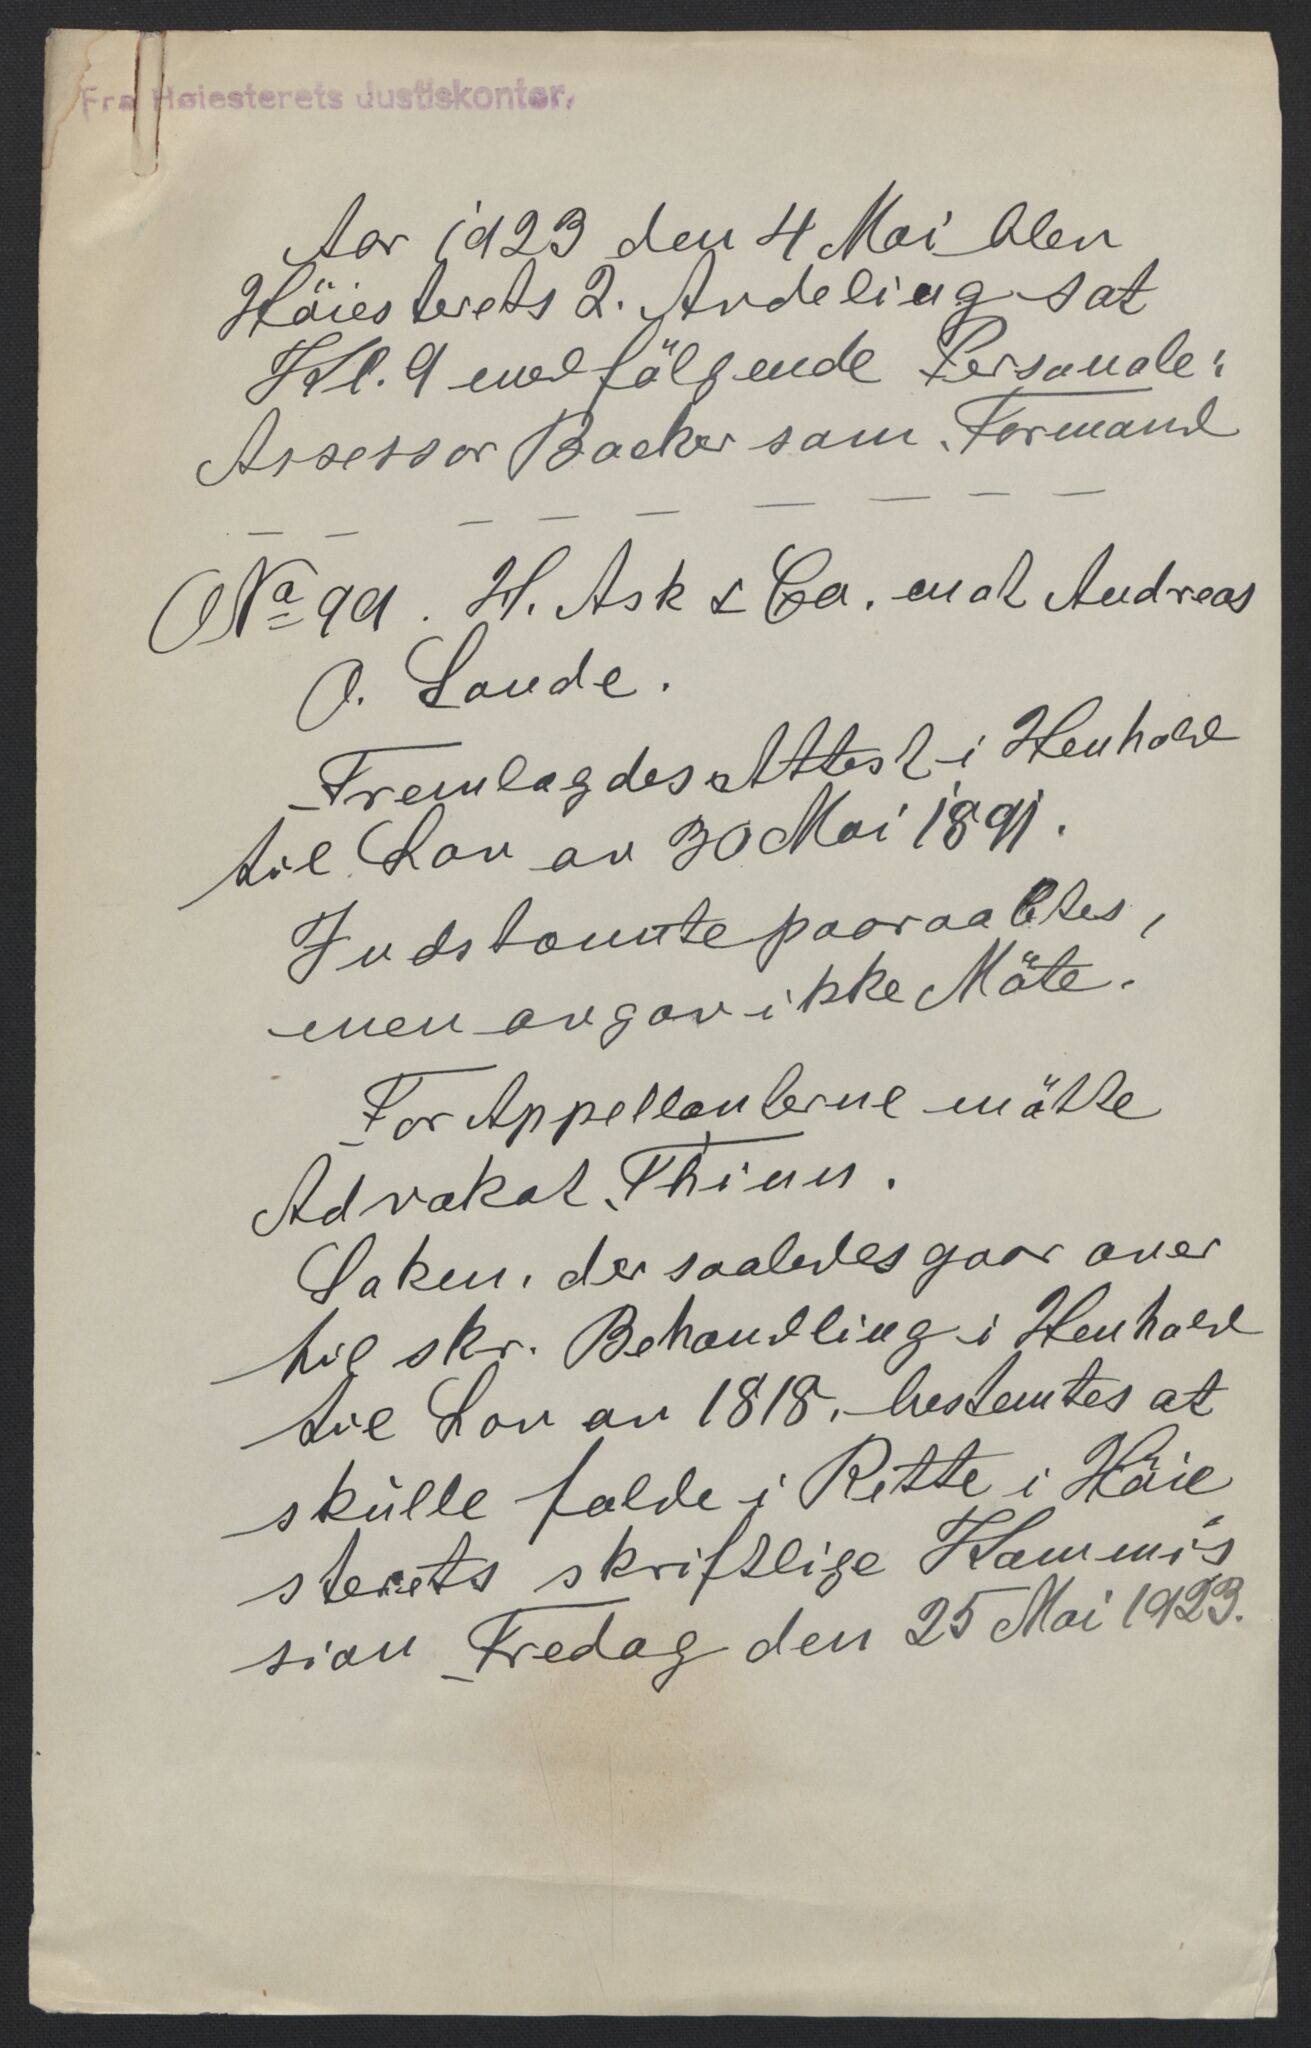 Fra Høiesterets Justiskontor.
Aar 1923 den 4 Mai blev
Höiesterets 2. Avdeling sat
Kl. 9 med fölgende Personale:
Assessor Backer som Formand
— — — — — — — —
No 99. H. Ask & Co. mot Andreas
O. Lande.
Fremlagdes Attest i Henhold
til Lov av 30 Mai 1891.
Indstevnte paaraabtes,
men avgav ikke Möte.
For Appellanterne mötte
Advokat Thinn.
Saken, der saaledes gaar over
til skr. Behandling i Henhold
til Lov av 1818, bestemtes at
skulle falde i Rette i Höie
sterets skriftlige Kommis
sion Fredag den 25 Mai 1923.